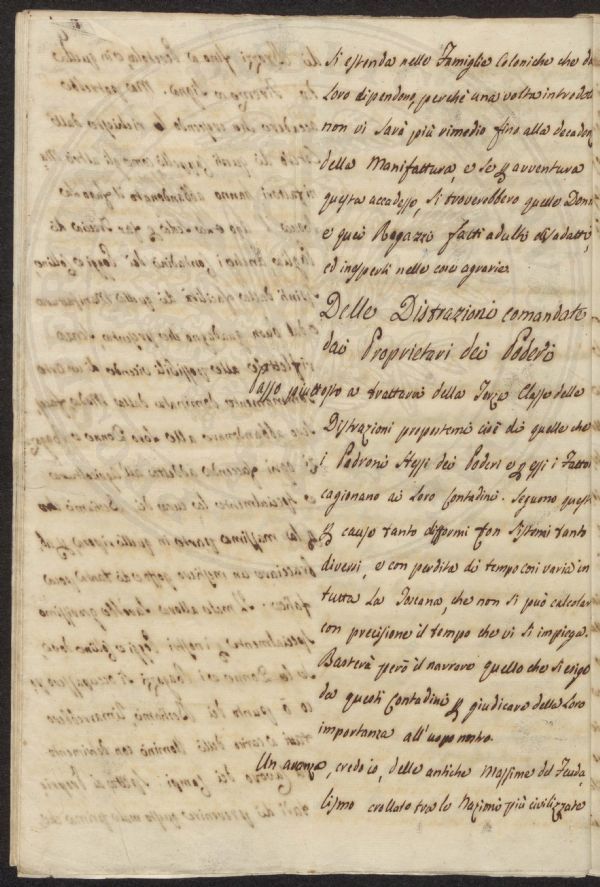 si estenda nelle Famiglie Coloniche che da
Loro dipendono, perchè una volta introdot
non vi sarà più rimedio fino alla decaden
della Manifattura, e se p avventura
questa accadesse, si troverebbero quelle Donn
e quei Ragazzi fatti adulti disadatti,
ed inesperti nelle cose agrarie.
Delle Distrazioni comandate
dai Proprietari dei Poderi
Passo piuttosto a trattare della Terza Classe delle
Distrazioni propostemi cioè di quelle che
i Padroni stessi dei Poderi e p essi i Fattori
cagionano ai Loro Contadini. Seguono queste
p cause tanto difformi con sistemi tanto
diversi, e con perdita di tempo così varia in
tutta La Toscana, che non si può calcolar
con precisione il tempo che vi si impiega.
Basterà però il narrare quello che si esige
da questi Contadini p giudicare della Loro
importanza all'uopo nostro.
Un avanzo, credo io, delle antiche Massime del Feuda,
lismo crollato tra le Nazioni più civilizzate